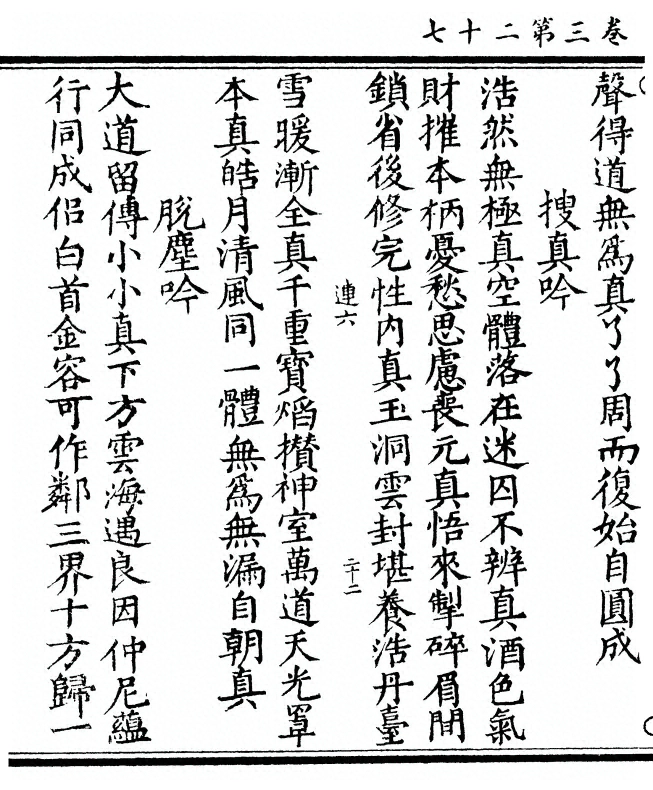 七十二第三卷
聲得道無爲真了了周而復始自圓成
搜真吟
浩然無極真空體落在迷囚不辨真酒色氣
財摧本柄憂愁思慮喪元真悟來掣碎眉間
鎖省後修完性內真玉洞雲封堪養浩丹臺
連六
二十二
雪暖漸全真千重寶焰攢神室萬道天光罩
本真皓月清風同一體無爲無漏自朝真
脫塵吟
大道留傳小小真下方雲海遇良因仲尼蘊
行同成侶白首金容可作鄰三界十方歸一